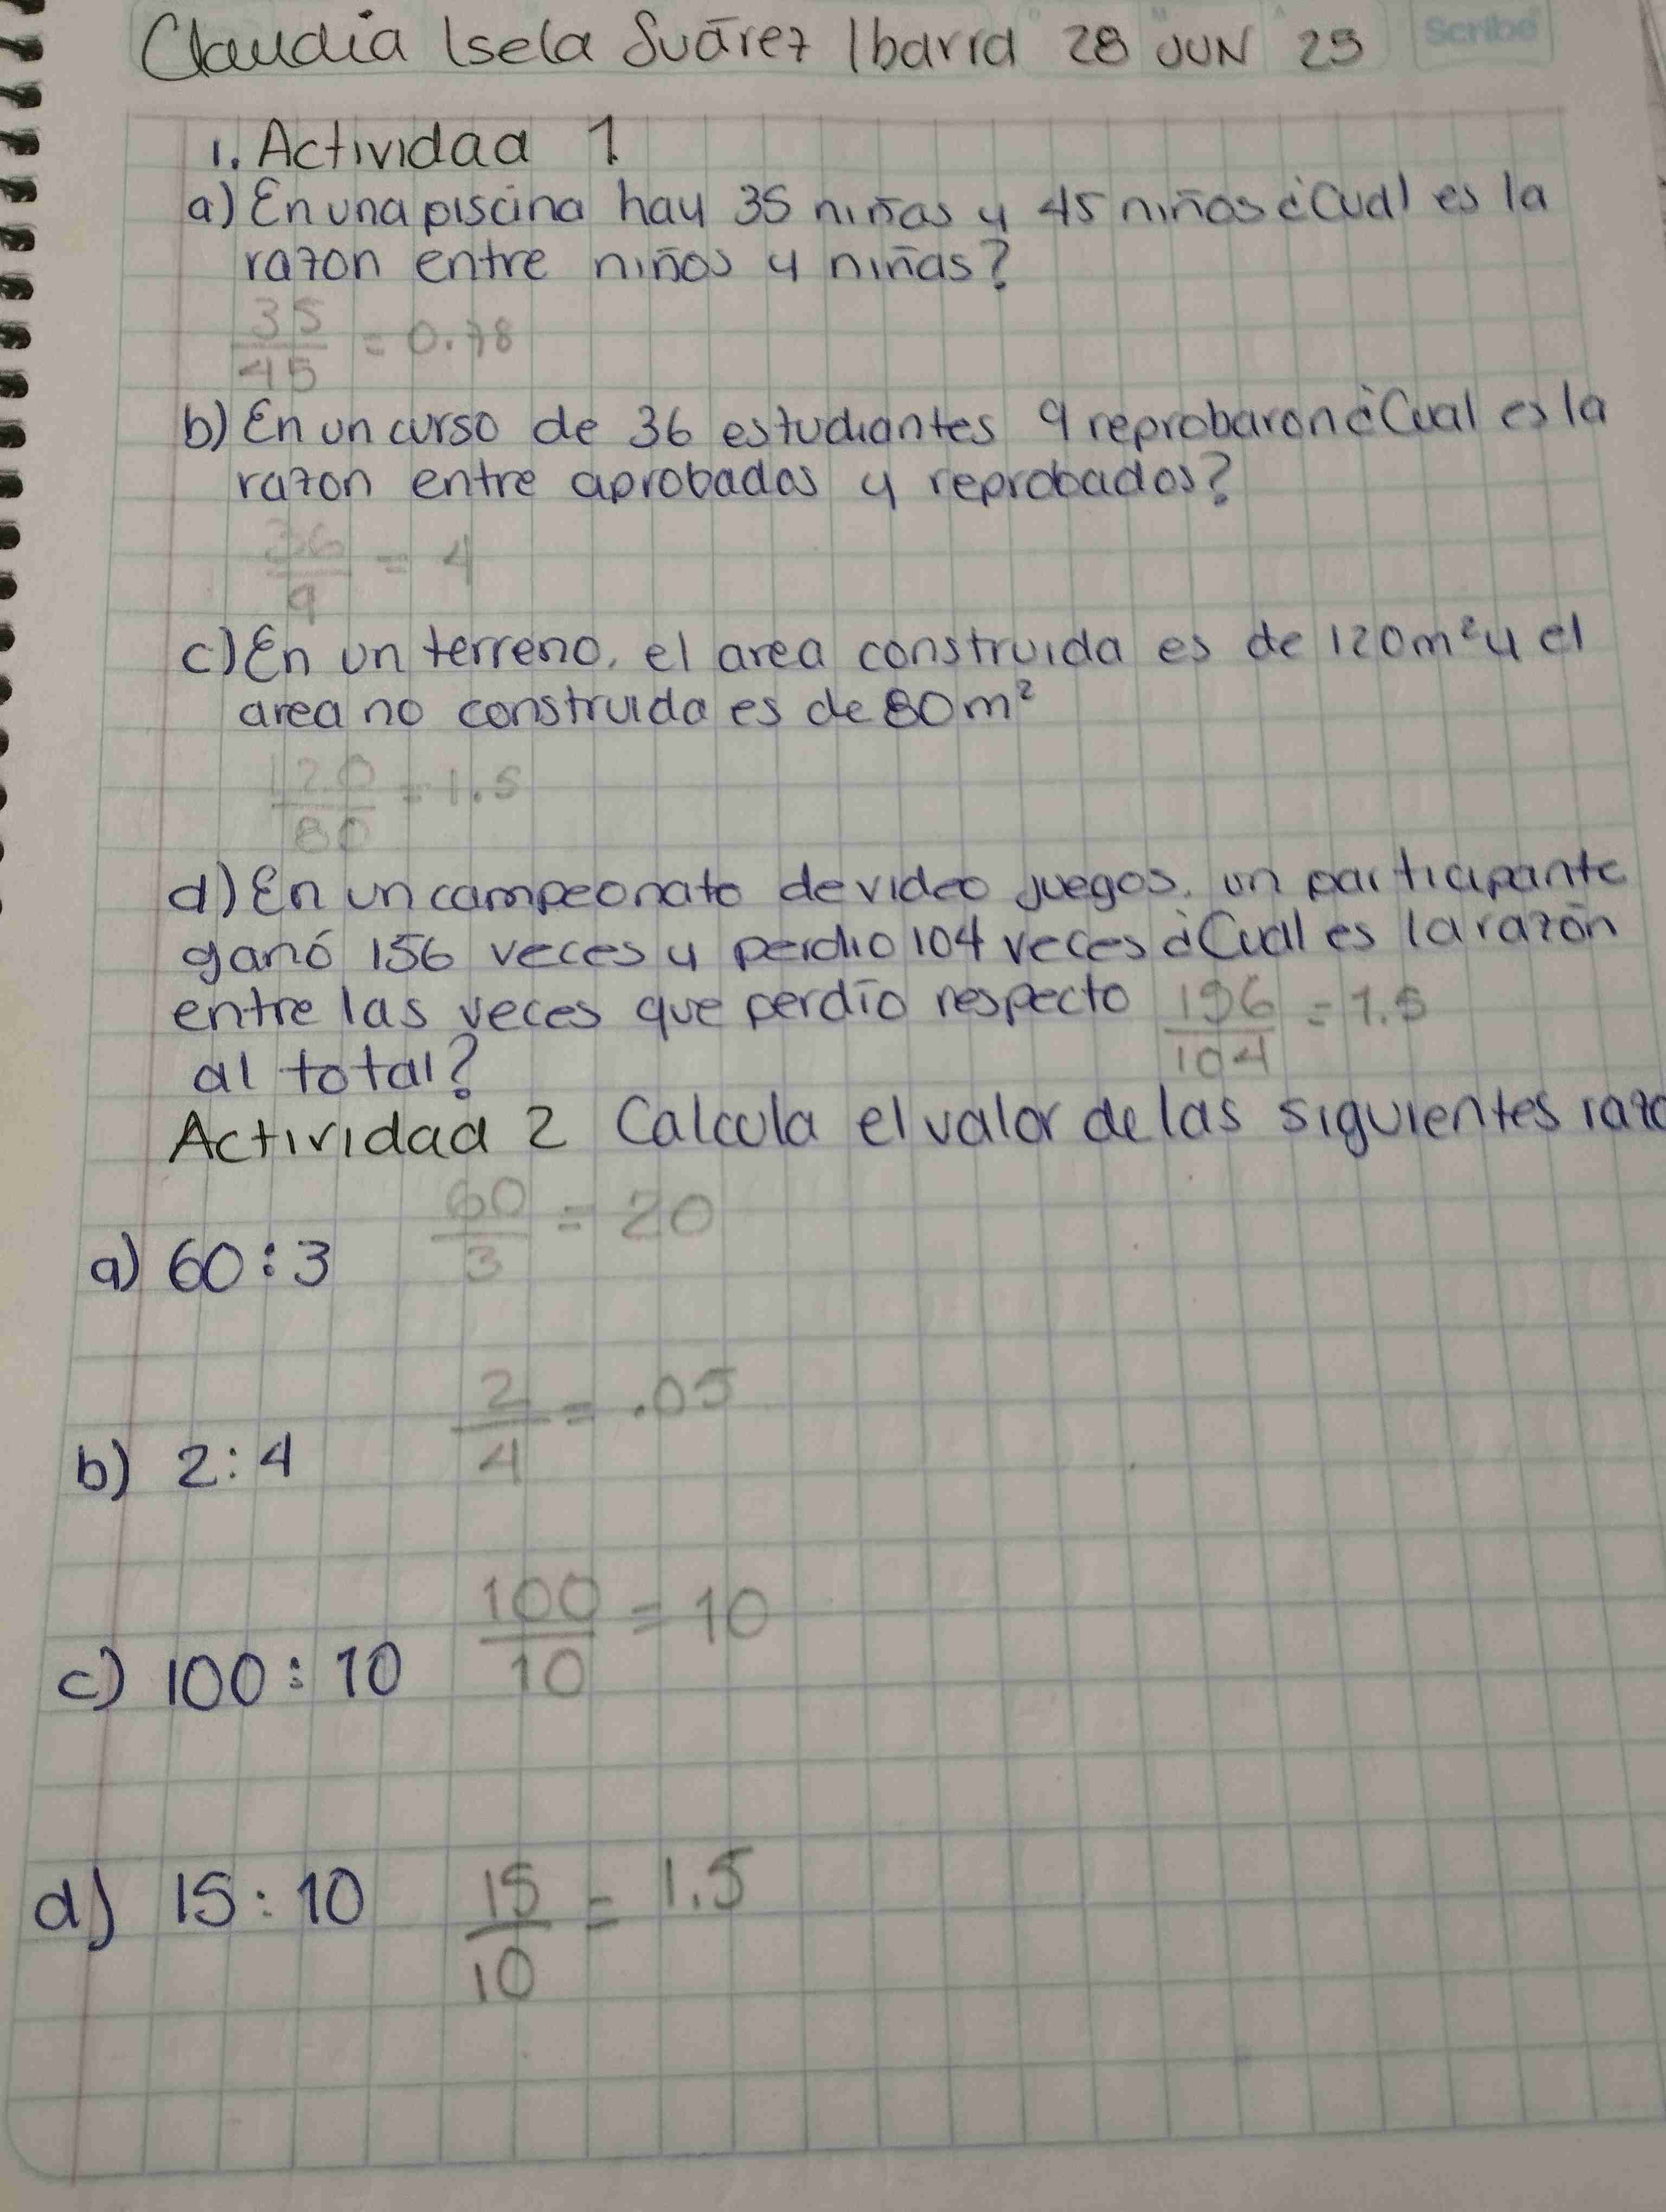 Claudia Isela Suárez Ibarra 28 JUN 25
Scribe
1. Actividad 1
a) En una piscina hay 35 niñas y 45 niños ¿Cual es la
razon entre niños y niñas?
35/45 = 0.78
b) En un curso de 36 estudiantes 9 reprobaron ¿Cual es la
razon entre aprobados y reprobados?
36/9 = 4
c) En un terreno, el area construida es de 120m² y el
area no construida es de 80m²
120/80 = 1.5
d) En un campeonato de video juegos, un participante
ganó 156 veces y perdio 104 veces ¿Cual es la razón
entre las veces que perdío respecto 156/104 = 1.5
al total?
Actividad 2 Calcula el valor de las siguientes razo
a) 60:3 60/3 = 20
b) 2:4 2/4 = .05
c) 100:10 100/10 = 10
d) 15:10 15/10 = 1.5